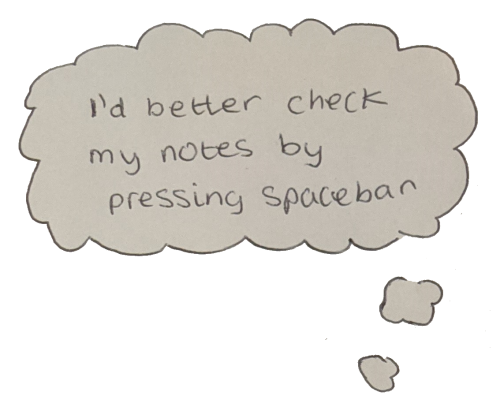 I'd better check
my notes by
pressing spacebar